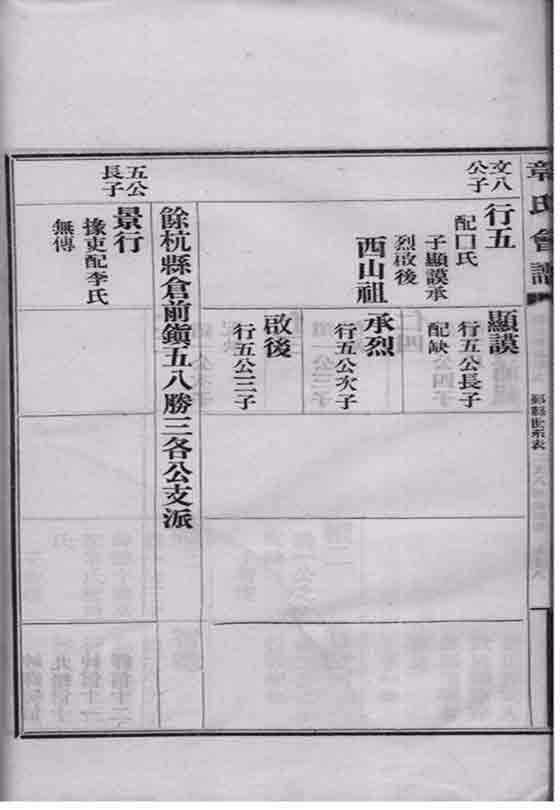 章氏會譜
文八
公子
行五
配囗氏
子顯謨承
烈啟後
西山祖
顯謨
行五公長子
配缺
承烈
行五公次子
啟後
行五公三子
餘杭縣倉前鎮五八勝三各公支派
五公
長子
景行
掾吏配李氏
無傳